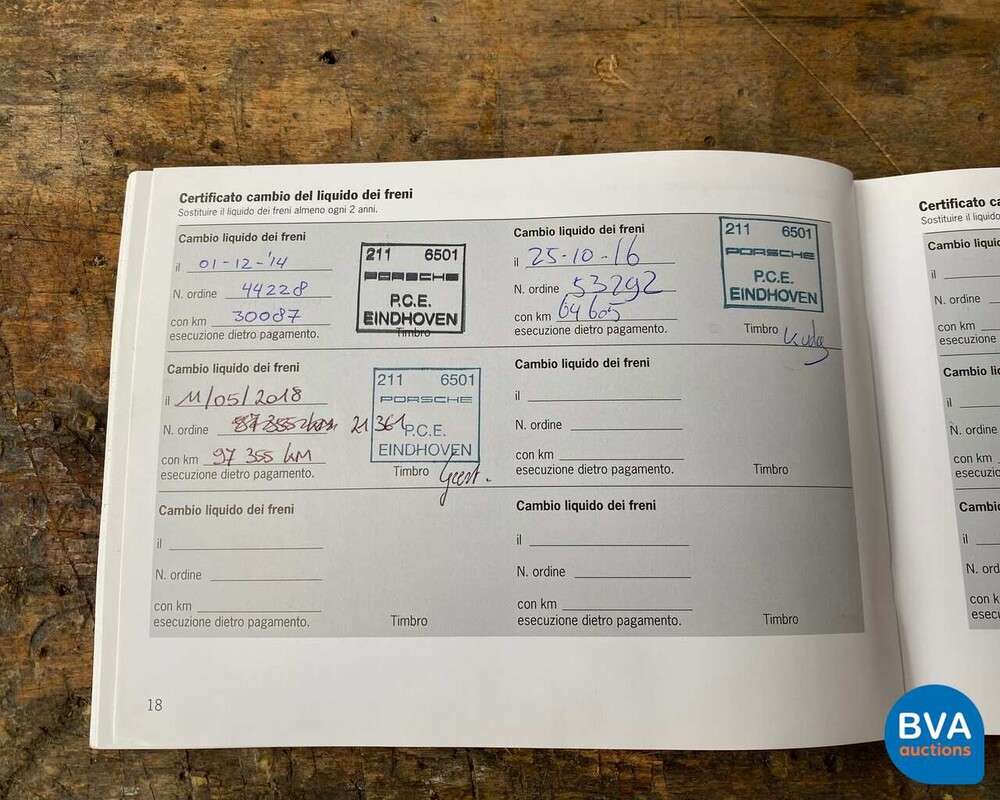 Certificato cambio del liquido dei freni
Sostituire il liquido dei freni almeno ogni 2 anni.
Cambio liquido dei freni
il 01-12-'14
N. ordine 44228
con km 30087
esecuzione dietro pagamento.
Timbro
211 6501
PORSCHE
P.C.E.
EINDHOVEN
Cambio liquido dei freni
il 25-10-16
N. ordine 53292
con km 64605
esecuzione dietro pagamento.
Timbro
211 6501
PORSCHE
P.C.E.
EINDHOVEN
Cambio liquido dei freni
il 11/05/2018
N. ordine 21361
con km 97 355 KM
esecuzione dietro pagamento.
Timbro
211 6501
PORSCHE
P.C.E.
EINDHOVEN
Cambio liquido dei freni
il
N. ordine
con km
esecuzione dietro pagamento.
Timbro
Cambio liquido dei freni
il
N. ordine
con km
esecuzione dietro pagamento.
Timbro
Cambio liquido dei freni
il
N. ordine
con km
esecuzione dietro pagamento.
Timbro
18
Certificato ca
Sostituire il liquido
Cambio liquid
il
N. ordine
con km
esecuzione
Cambio li
il
N. ordine
con km
esecuzi
Cambi
il
N. ord
con k
esecu
BVA
auctions